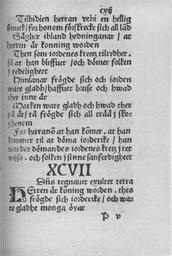 cxij
Tilbidien herran vthi en hellig
smuck: for honom förskrecke sich all låd
Säyher ibland hedningana: at
herren är konning worden
Then som iordenes kretz tilredher,
så at han bliffuer / och dömer folken
j redeligheet
Himlanar frögde sich och iorden
ware gladh / haffuet bause och hwad
ther inne är
Marken ware gladh och hwad ther
på är / tå frögde sich all trää j skoghenom
For herranom at han kömer, at han
kommer til at döma iorderike / han
war der dömandes iordenes kretz j ret
wiso, och folken j sinne sanferdigheet
XCVII
Dñs regnauit exultet terra
Erren är konning worden, thes
frögde sich iorderike / och wa
re gladhe monga öyar
P v